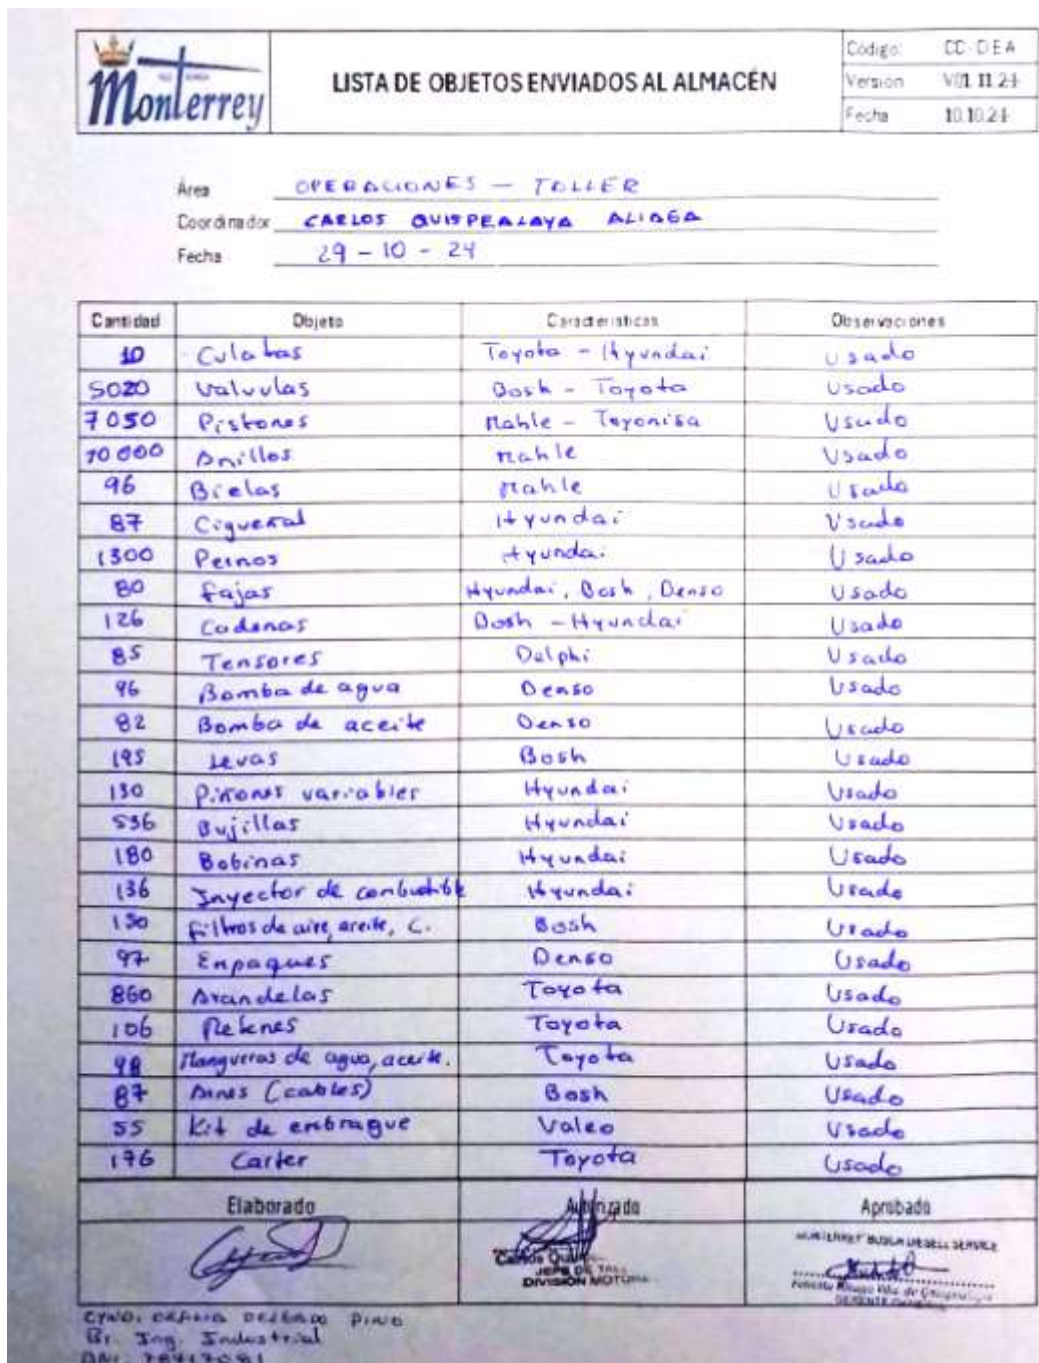 Monterrey
LISTA DE OBJETOS ENVIADOS AL ALMACÉN
Código: CC-DEA
Versión V01.11.24
Fecha 10.10.24
Área OPERACIONES - TALLER
Coordinador CARLOS QUISPEALAYA ALIAGA
Fecha 29-10-24
Cantidad Objeto Características Observaciones
10 Culatas Toyota - Hyundai Usado
5020 Valvulas Bosh - Toyota Usado
7050 Pistones Mahle - Teyonisa Usado
10 000 Anillos Mahle Usado
96 Bielas Mahle Usado
87 Cigueñal Hyundai Usado
1300 Pernos Hyundai Usado
80 Fajas Hyundai, Bosh, Denso Usado
126 Cadenas Bosh - Hyundai Usado
85 Tensores Delphi Usado
96 Bomba de agua Denso Usado
82 Bomba de aceite Denso Usado
195 Levas Bosh Usado
130 Piñones variables Hyundai Usado
536 Bujillas Hyundai Usado
180 Bobinas Hyundai Usado
136 Inyector de combustible Hyundai Usado
150 Filtros de aire, aceite, C. Bosh Usado
97 Enpaques Denso Usado
860 Arandelas Toyota Usado
106 Retenes Toyota Usado
98 Mangueras de agua, aceite. Toyota Usado
87 (cables) Bosh Usado
55 Kit de enbrague Valeo Usado
176 Carter Toyota Usado
Elaborado Autorizado Aprobado
JEFE DE
DIVISIÓN
GERENTE
DELGADO PINO
Br. Ing. Industrial